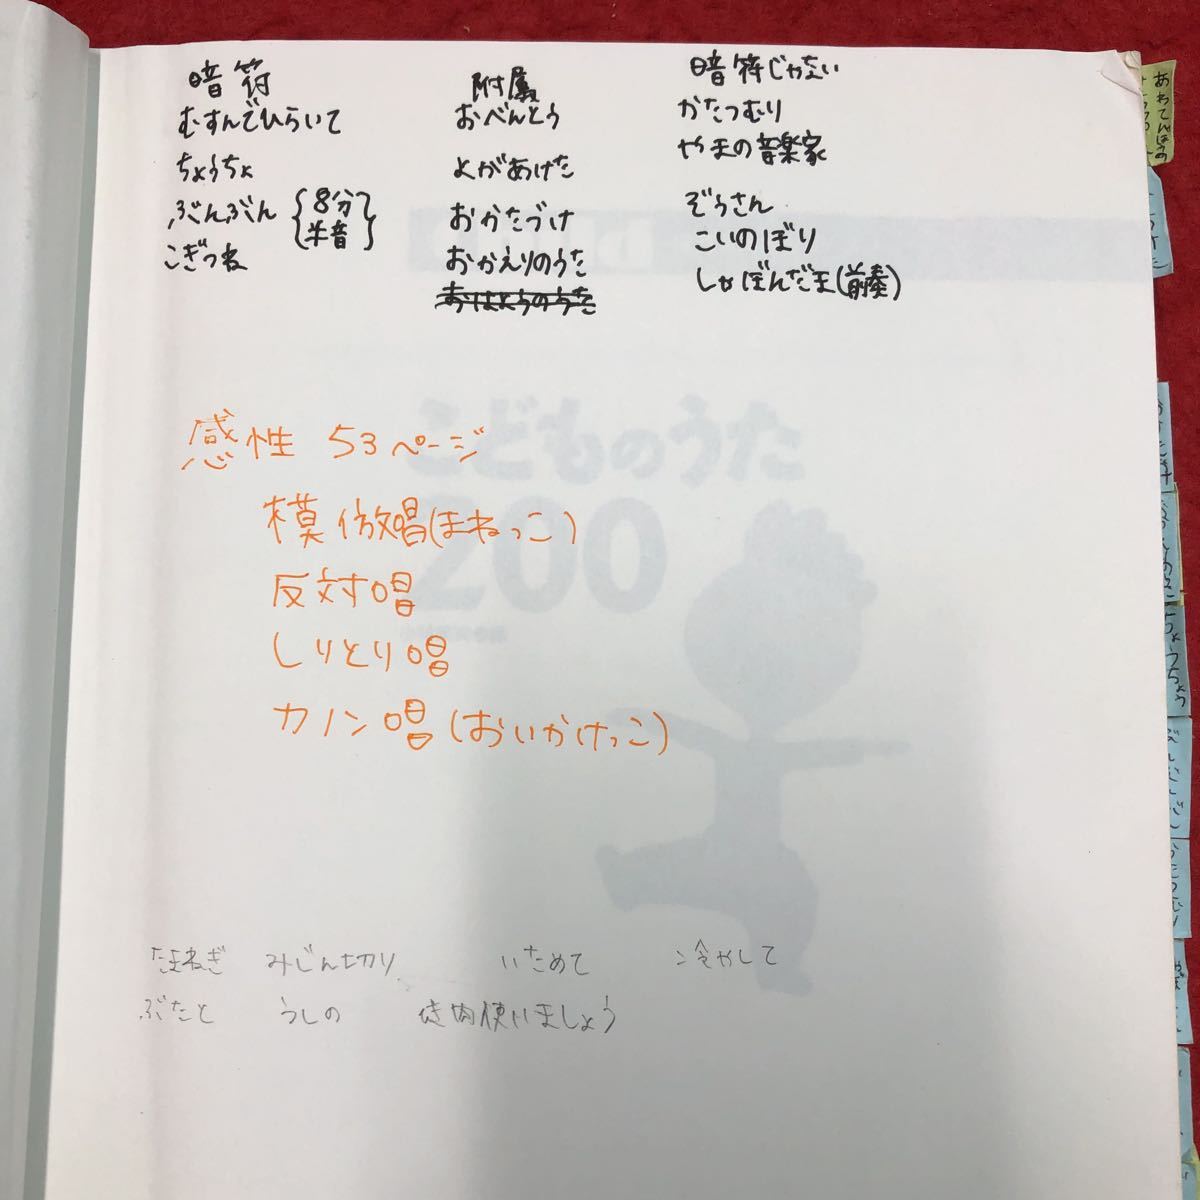 暗符
むすんでひらいて
ちょうちょ
ぶんぶん {8分 半音}
こぎつね
附属
おべんとう
よがあけた
おかたづけ
おかえりのうた
おはようのうた
暗符じゃない
かたつむり
やまの音楽家
ぞうさん
こいのぼり
しゃぼんだま(前奏)
感性 53ページ
模倣唱(まねっこ)
反対唱
しりとり唱
カノン唱(おいかけっこ)
こどものうた
200
たまねぎ みじん切り いためて 冷やして
ぶたと うしの 焼肉使いましょう
ちょうちょう
かたつむり